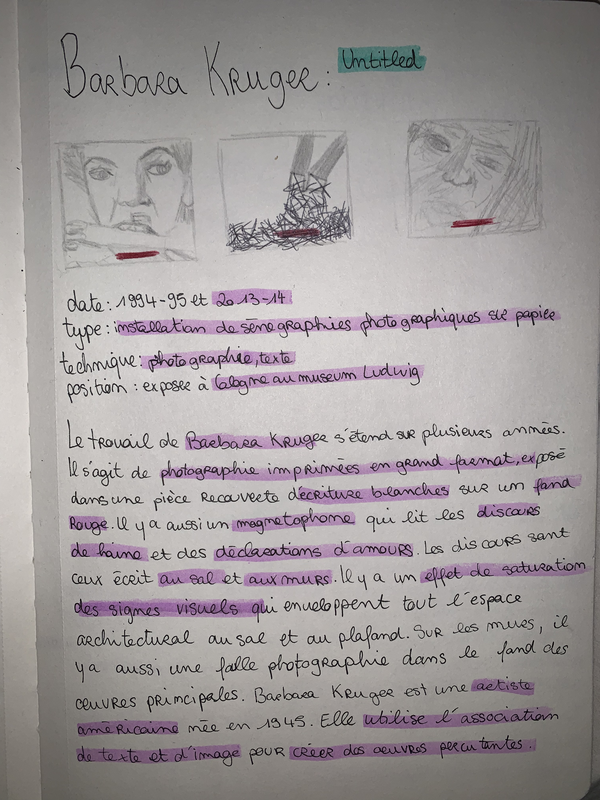 Barbara Kruger: Untitled
date: 1994-95 et 2013-14
type: installation de sénographies photographiques sur papier
technique: photographie, texte
position: exposée à Cologne au museum Ludwig
Le travail de Barbara Kruger s'étend sur plusieurs années.
Il s'agit de photographie imprimées en grand format, exposé
dans une pièce recouverte d'écriture blanches sur un fond
Rouge. Il y a aussi un magnetophone qui lit les discours
de haine et des déclarations d'amours. Les discours sont
ceux écrit au sol et aux murs. Il y a un effet de saturation
des signes visuels qui enveloppent tout l'espace
architectural au sol et au plafond. Sur les murs, il
y a aussi une folle photographie dans le fond des
œuvres principales. Barbara Kruger est une artiste
américaine née en 1945. Elle utilise l'association
de texte et d'image pour créer des œuvres percutantes.